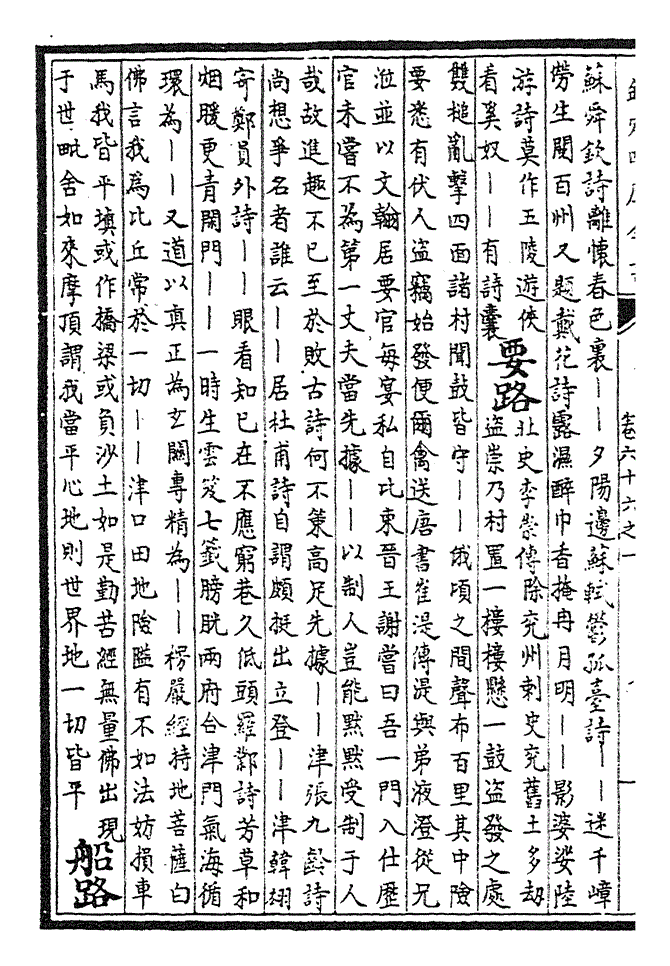 蘇舜欽詩離懷春色裏丨丨夕陽邊蘇軾鬱孤臺詩丨丨迷千嶂
勞生閱百州又題戴花詩露濕醉巾香掩冉月明丨丨影婆娑陸
游詩莫作五陵遊俠
看奚奴丨丨有詩囊
要路
北史李崇傳除兖州刺史兖舊土多劫
盜崇乃村置一樓樓懸一鼓盜發之處
雙槌亂擊四面諸村聞鼓皆守丨丨俄頃之間聲布百里其中險
要悉有伏人盜竊始發便爾禽送唐書崔湜傳湜與弟液澄從兄
涖並以文翰居要官每宴私自比東晉王謝嘗曰吾一門入仕歷
官未嘗不為第一丈夫當先據丨丨以制人豈能默默受制于人
哉故進趣不已至於敗古詩何不策高足先據丨丨津張九齡詩
尚想爭名者誰云丨丨居杜甫詩自謂頗挺出立登丨丨津韓翃
寄鄭員外詩丨丨眼看知已在不應窮巷久低頭羅鄴詩芳草和
烟暖更青閑門丨丨一時生雲笈七籤膀胱兩府合津門氣海循
環為丨丨又道以真正為玄關專精為丨丨楞嚴經持地菩薩白
佛言我爲比丘常於一切丨丨津口田地險隘有不如法妨損車
馬我皆平填或作橋梁或負沙土如是勤苦經無量佛出現
于世毗舍如來摩頂謂我當平心地則世界地一切皆平
船路
卷六十六之一